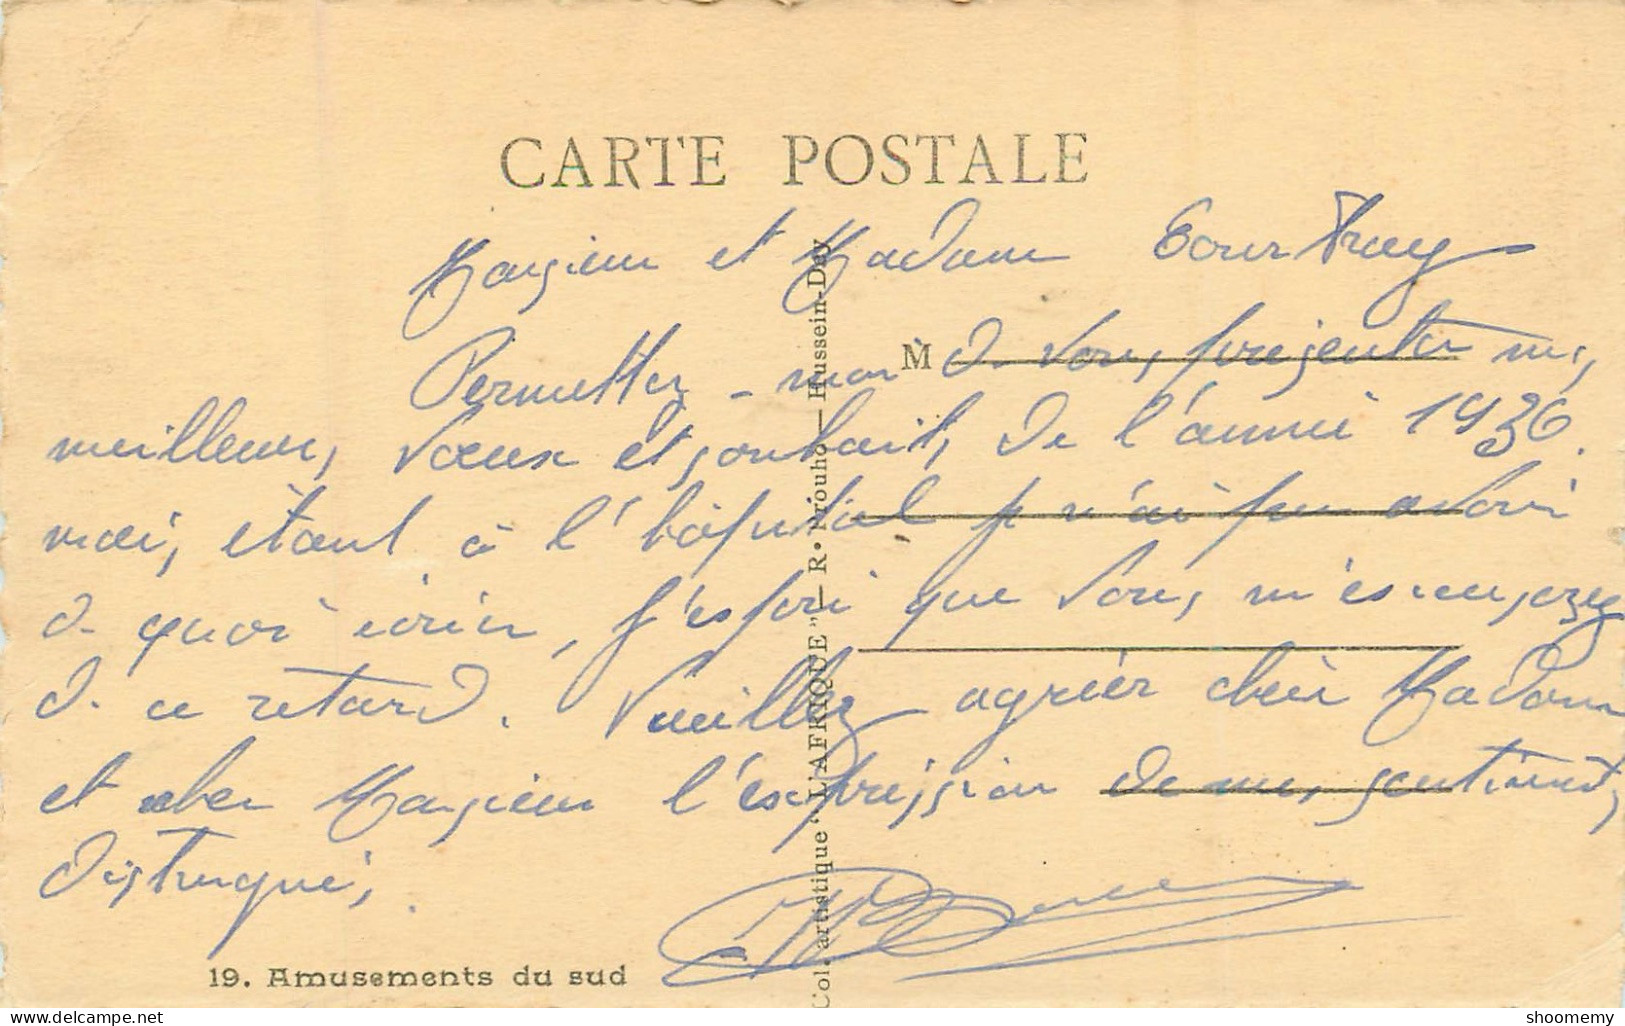 CARTE POSTALE
Monsieur et Madame
Permettez-moi de vous présenter mes
M
meilleurs vœux et souhaits de l'année 1936.
moi, étant à l'hôpital je n'ai pu avoir
de quoi écrire, j'espère que vous m'escusezez
de ce retard. Veuillez agréer chère Madame
et cher Monsieur l'expression de mes sentiments
distingués.
19. Amusements du sud
Col. artistique "L'AFRIQUE" — R. Prouho — Hussein-Dey
delcampe.net
shoomemy